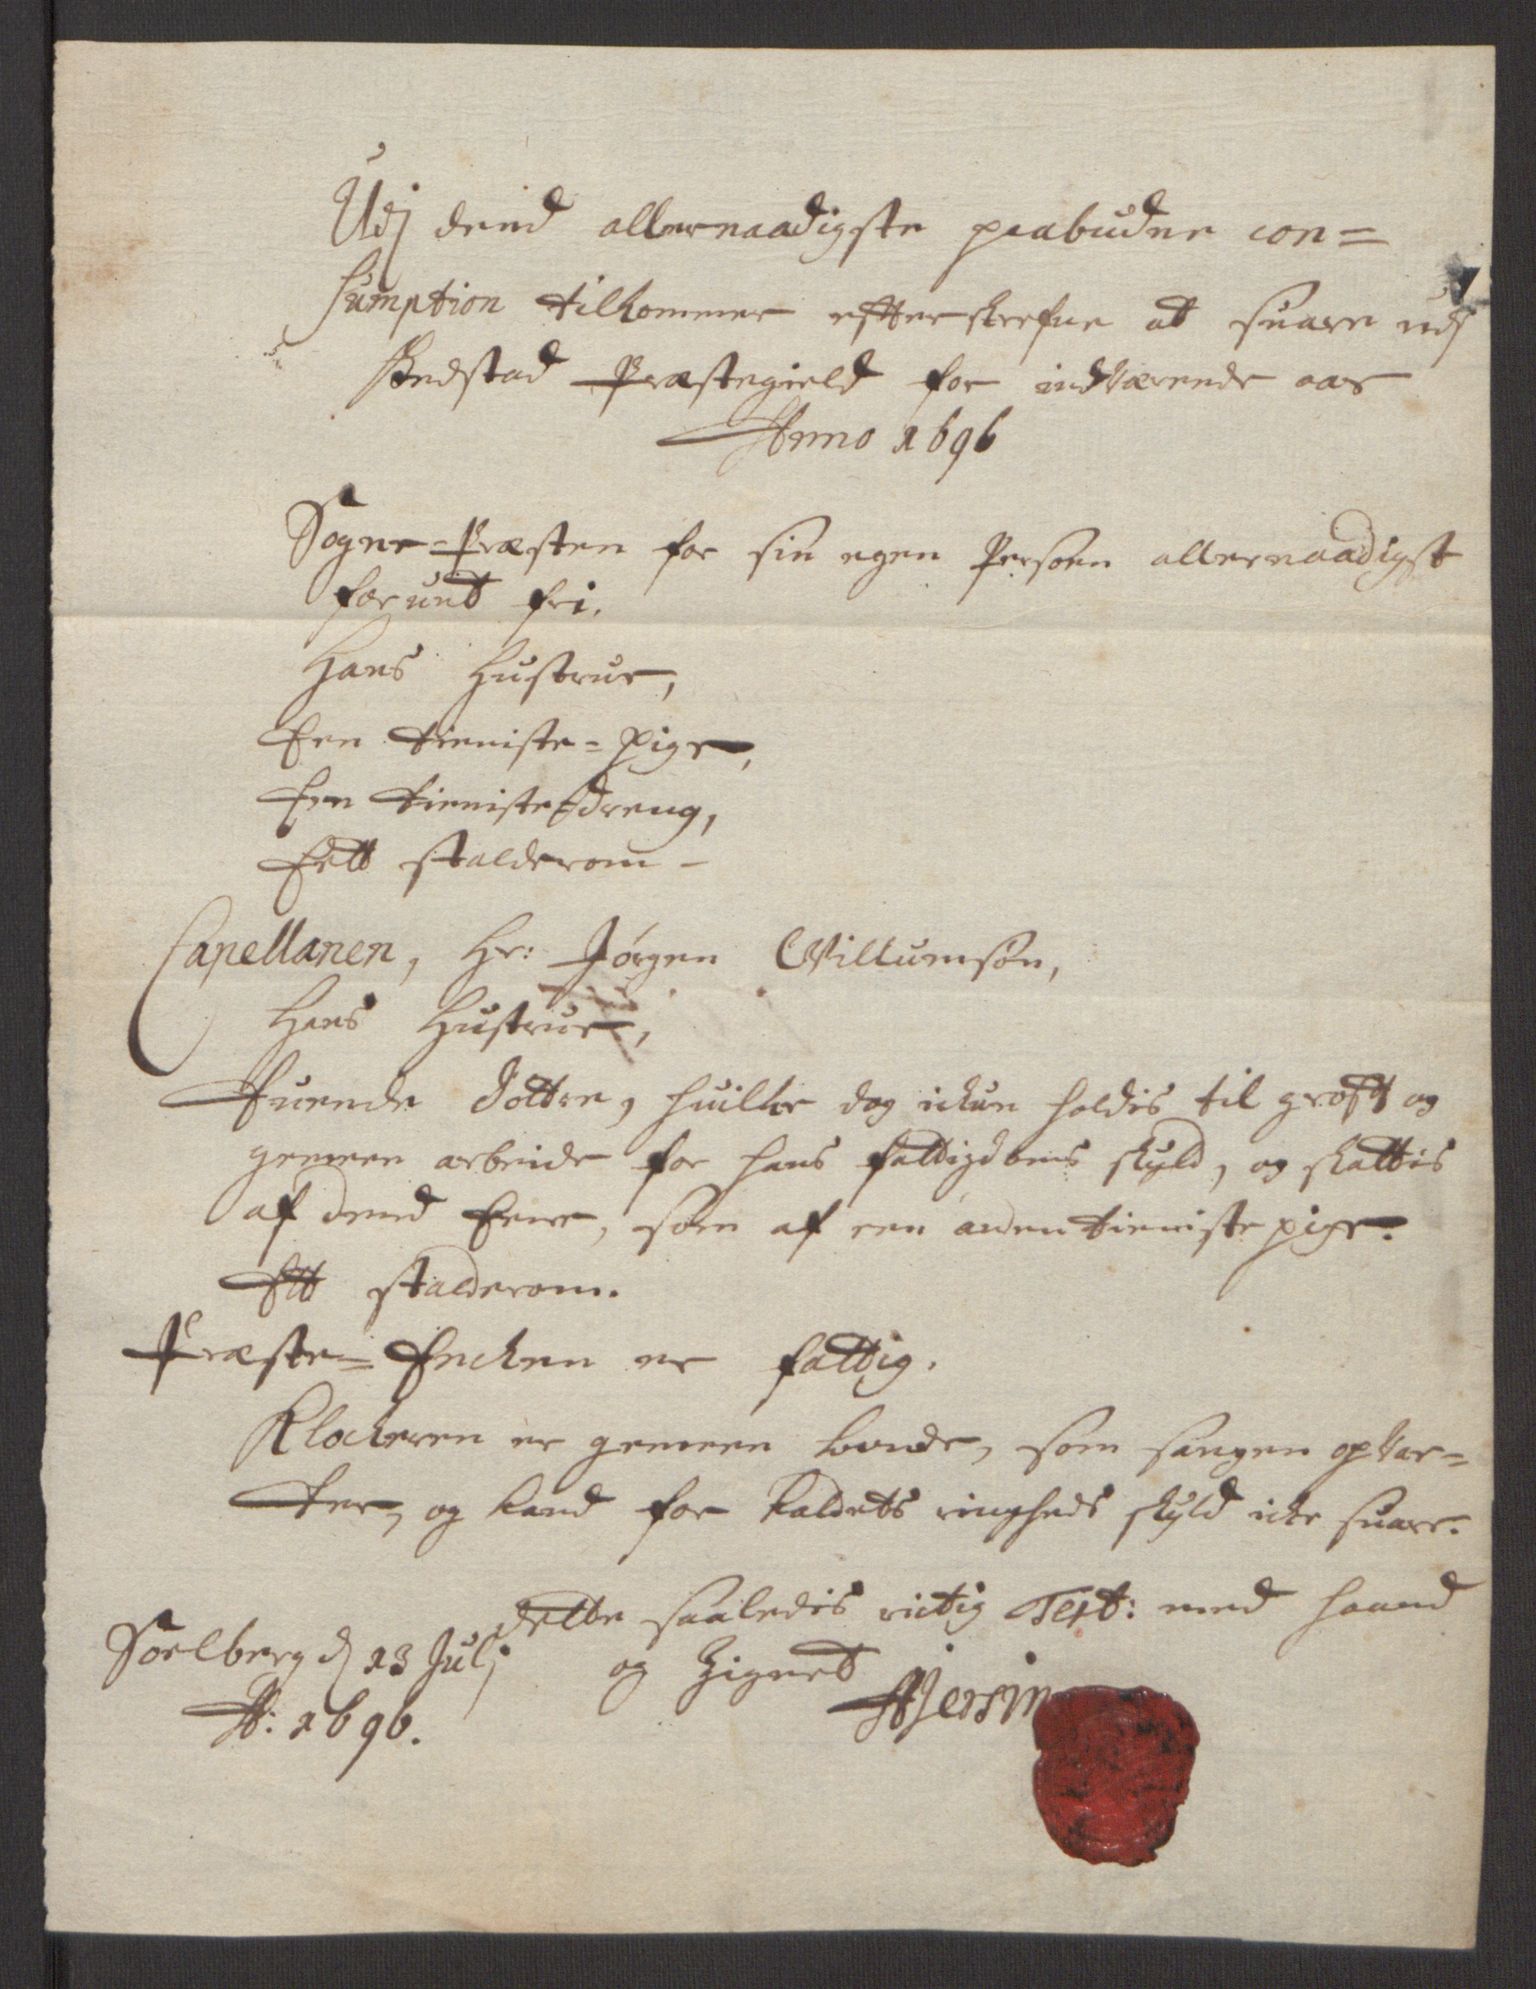 Udj dend allernaadigste paabudne con=
sumption tilkommer effterskrefne at suare udj
Hedstad Præstegield for indværende aar
Anno 1696
Sogne-Præsten for sin egen Persoen allernaadigst
forunt fri.
Hans Hustrue,
Een tieniste-pige,
Een tieniste dreng,
Eett stalderom -
Capellanen, Hr: Jørgen Willumsøn,
Hans Hustrue,
Tuende Døttre, huilke dog ickun holdis til groft og
gemeen arbeide for hans fattigdoms skyld, og skattis
af dend Eene, som af een anden tieniste pige.
Ett stalderom.
Præste-Encken er fattig.
Klockeren er gemeen bonde, som sangen opvar=
ter, og kand for kaldets ringheds skyld icke suare.
dette saaledis rictig Test: med haand
og Zignet
Soelberg d 13 Julj
A: 1696.